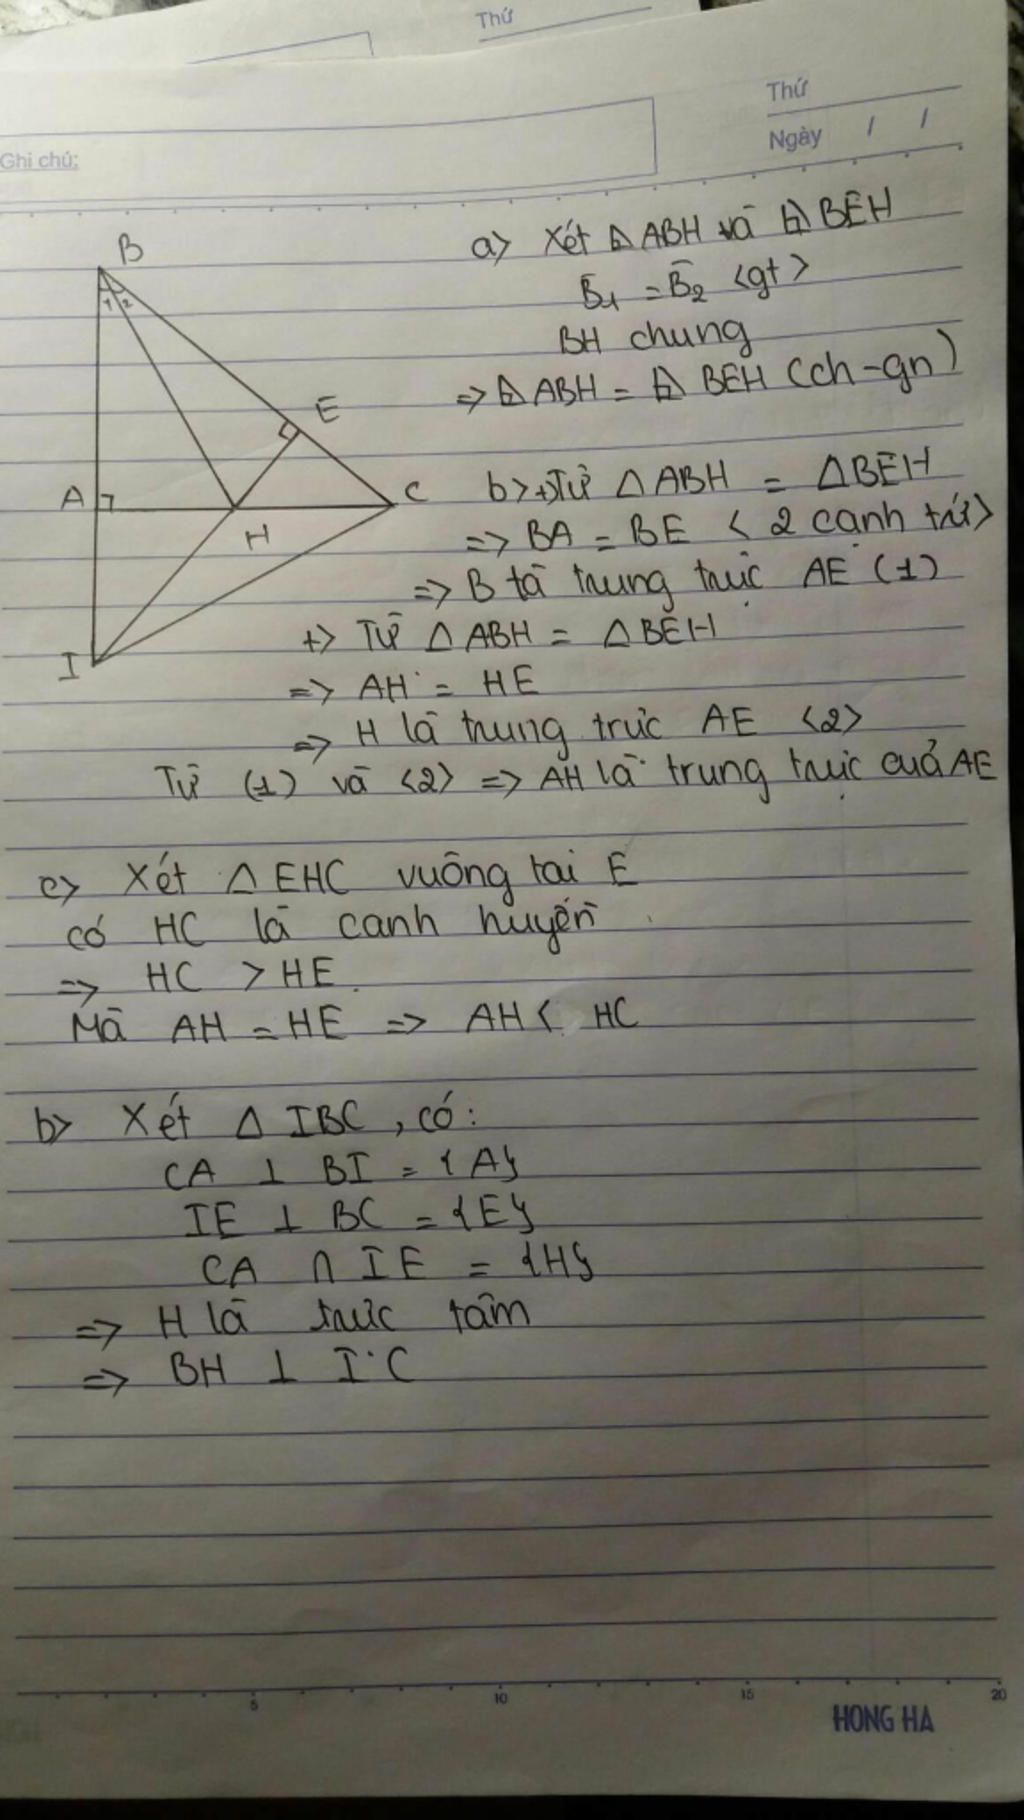 Thứ
Thứ
Ngày / /
Ghi chú:
B
1 2
E
A
C
H
I
a> Xét △ ABH và △ BEH
B̂1 = B̂2 <gt>
BH chung
=> △ ABH = △ BEH (ch-gn)
b> +>Từ △ ABH = △BEH
=> BA = BE < 2 cạnh tứ>
=> B là trung trực AE (1)
+> Từ △ ABH = △BEH
=> AH = HE
=> H là trung trực AE <2>
Từ (1) và <2> => AH là trung trực của AE
c> Xét △ EHC vuông tại E
có HC là cạnh huyền
=> HC > HE.
Mà AH = HE => AH < HC
b> Xét △ IBC, có:
CA ⊥ BI = {A}
IE ⊥ BC = {E}
CA ∩ IE = {H}
=> H là trực tâm
=> BH ⊥ IC
5 10 15 20
HONG HA